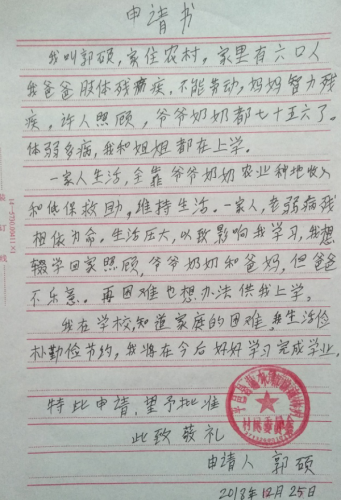 申请书
我叫郭硕,家住农村,家里有六口人
我爸爸肢体残疾,不能劳动,妈妈智力残
疾,许人照顾,爷爷奶奶都七十五六了。
体弱多病,我和姐姐都在上学。
一家人生活,全靠爷爷奶奶农业种地收入
和低保救助,维持生活。一家人,老弱病残
相依为命。生活压大,以致影响我学习,我想
辍学回家照顾,爷爷奶奶和爸妈,但爸爸
不乐意。再困难也想办法供我上学。
我在学校,知道家庭的困难,生活俭
朴勤俭节约,我将在今后好好学习完成学业。
特此申请,望予批准
此致敬礼
村民委员会
申请人 郭硕
2018年12月25日
装订线